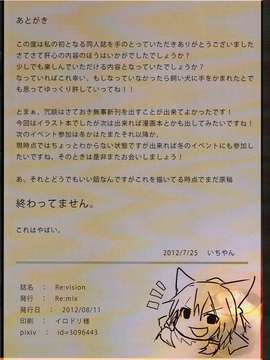 あとがき
この度は私の初となる同人誌を手のとっていただきありがとうございました
さてさて肝心の内容のほうはいかがでしたでしょうか？
少しでも楽しんでいただける内容となっていたでしょうか？
なっていればこれ幸い、もしなっていなかったら飼い犬に手をかまれたとで
も思ってゆっくり許していってね！！
とまぁ、冗談はさておき無事新刊を出すことが出来てよかったです！
今回はイラスト本でしたが次は出来れば漫画本とかも出してみたいですね！
次のイベント参加は冬かはたまたそれ以降か、
現時点ではちょっとわからない状態ですが出来れば冬のイベントにも参加し
たいですね、そのときは是非またお会いしましょう！
あ、それとどうでもいい話なんですがこれを描いてる時点でまだ原稿
終わってません。
これはやばい。
2012/7/25 いちやん
誌名 ： Re:vision
発行 ： Re:mix
発行日 ： 2012/08/11
印刷 ： イロドリ様
pixiv ： id=3096443